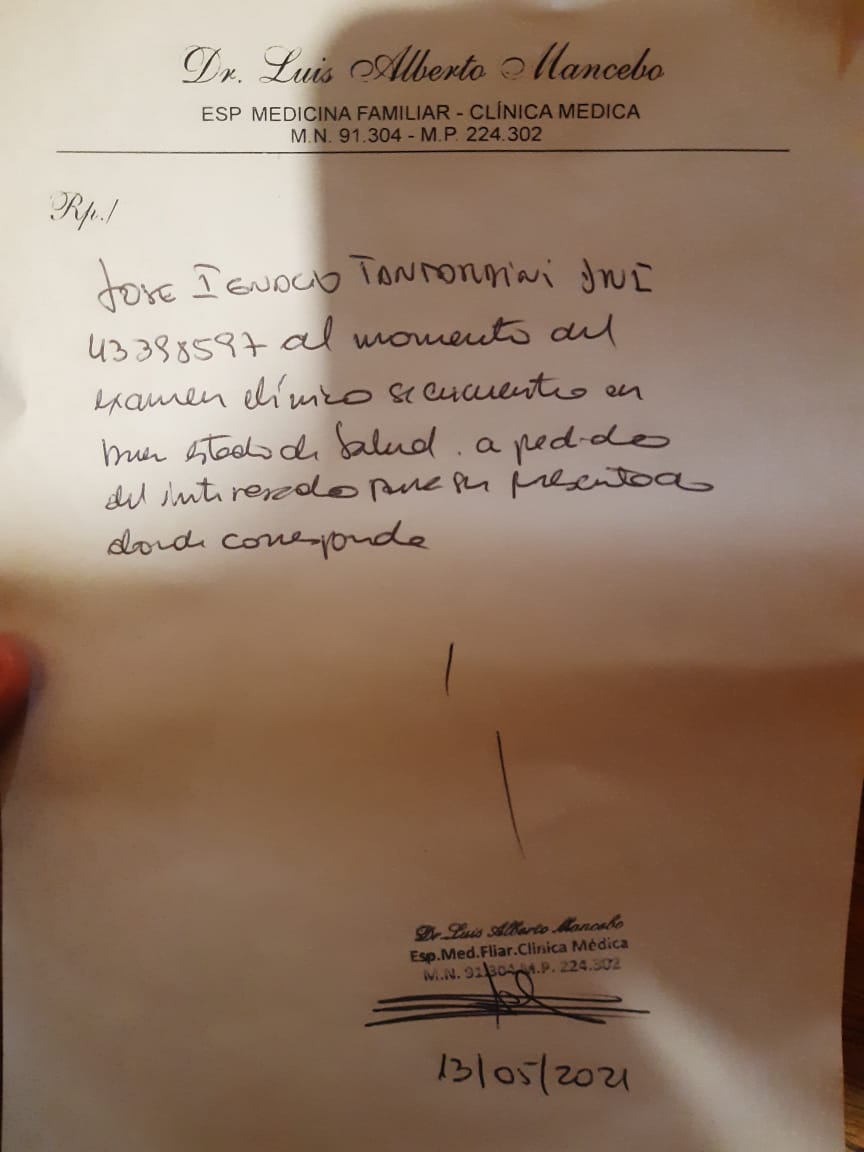 Dr. Luis Alberto Mancebo
ESP MEDICINA FAMILIAR - CLÍNICA MEDICA
M.N. 91.304 - M.P. 224.302
Rp./
JOSE IGNACIO DNI
43398597 al momento del
examen clínico se encuentra en
buen estado de Salud. a pedido
del interesado para ser presentado
donde corresponda
Dr Luis Alberto Mancebo
Esp.Med.Fliar.Clinica Médica
M.N. 91.304 M.P. 224.302
13/05/2021